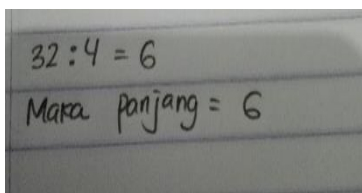 32 : 4 = 6
Maka panjang = 6